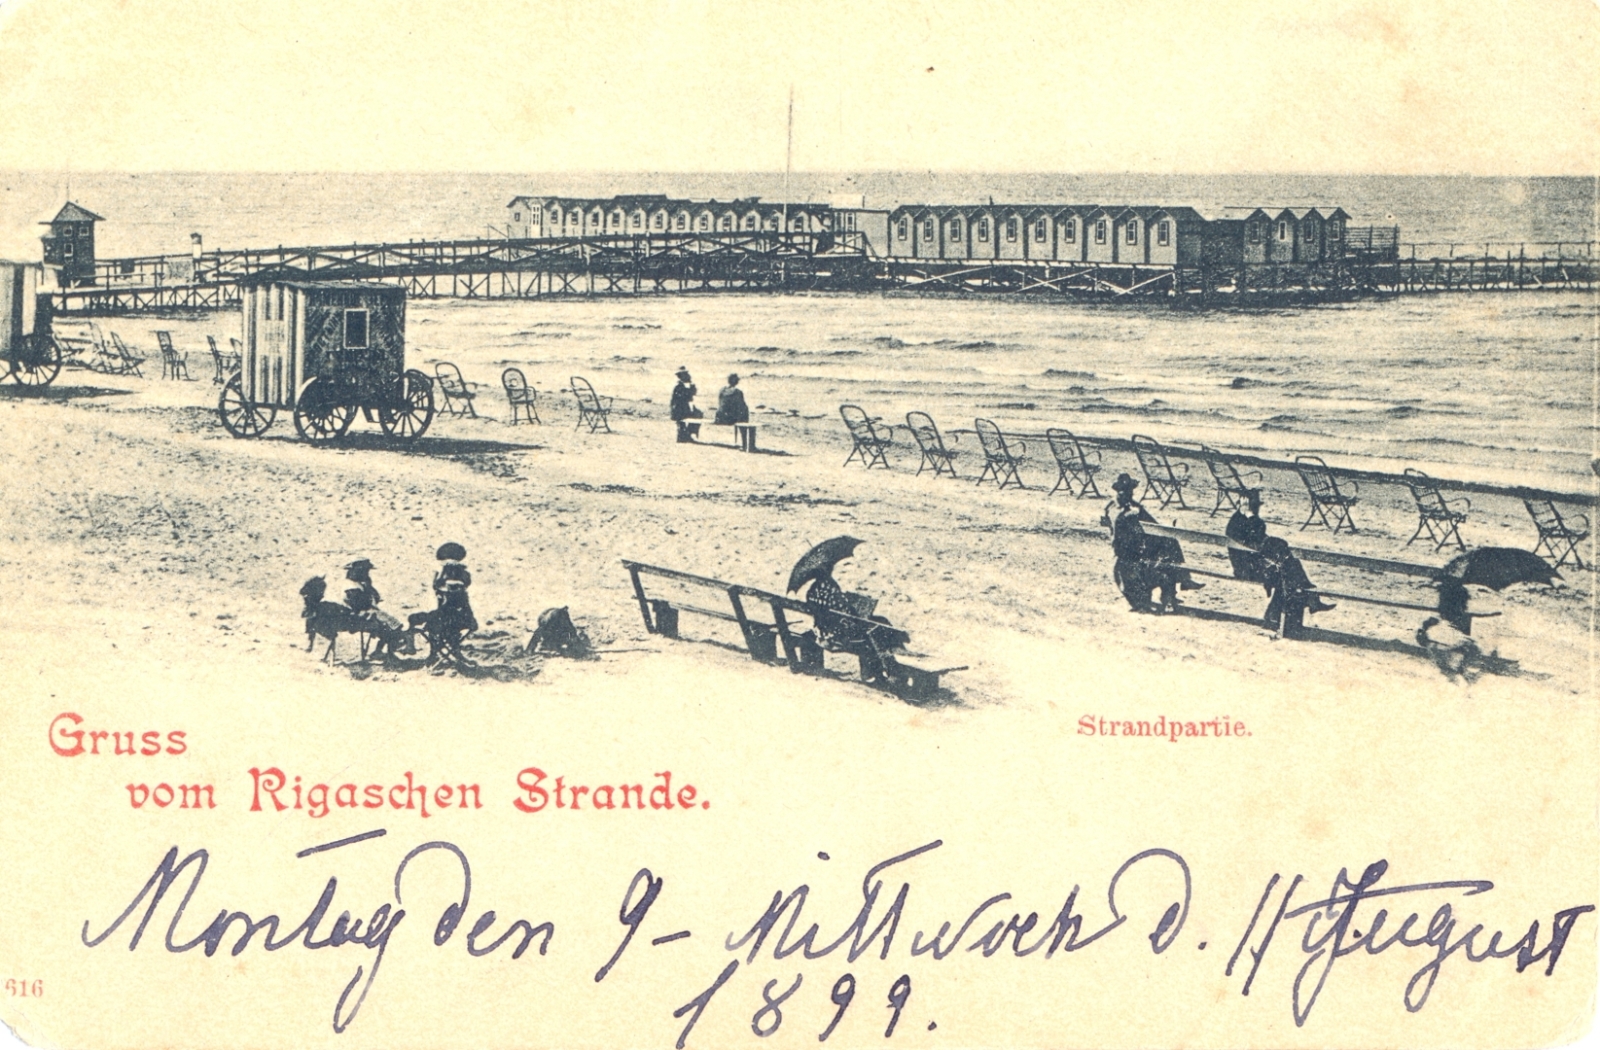 Gruss
vom Rigaschen Strande.
Strandpartie.
Montag den 9 - Mittwoch d. 11 August
1899.
616